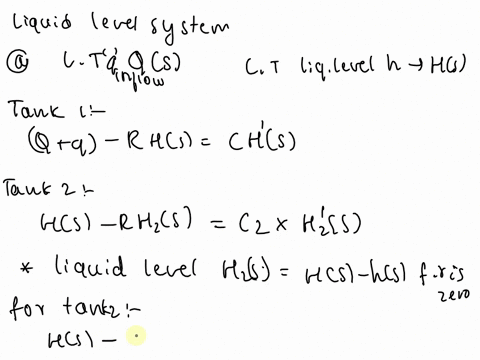 Liquid level system
ⓐ L.T q' Q(s) inflow L.T liq.level h → H(s)
Tank 1:-
(Q+q) - RH(s) = CH'(s)
Tank 2:-
H(s) - RH₂(s) = C2 × H₂'(s)
* liquid level H₂(s) = H(s) - h(s) f.r is zero
for tank2:-
H(s) -